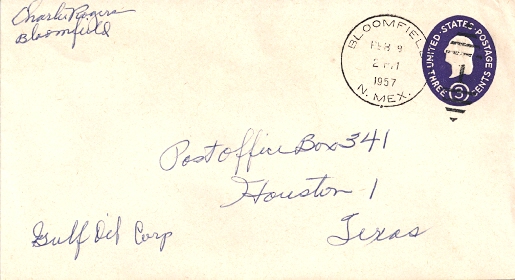 Charlie Rogers
Bloomfield
BLOOMFIELD
FEB 9
2 PM
1957
N. MEX.
UNITED STATES POSTAGE
THREE 3 CENTS
Post office Box 341
Houston - 1
Texas
Gulf Oil Corp